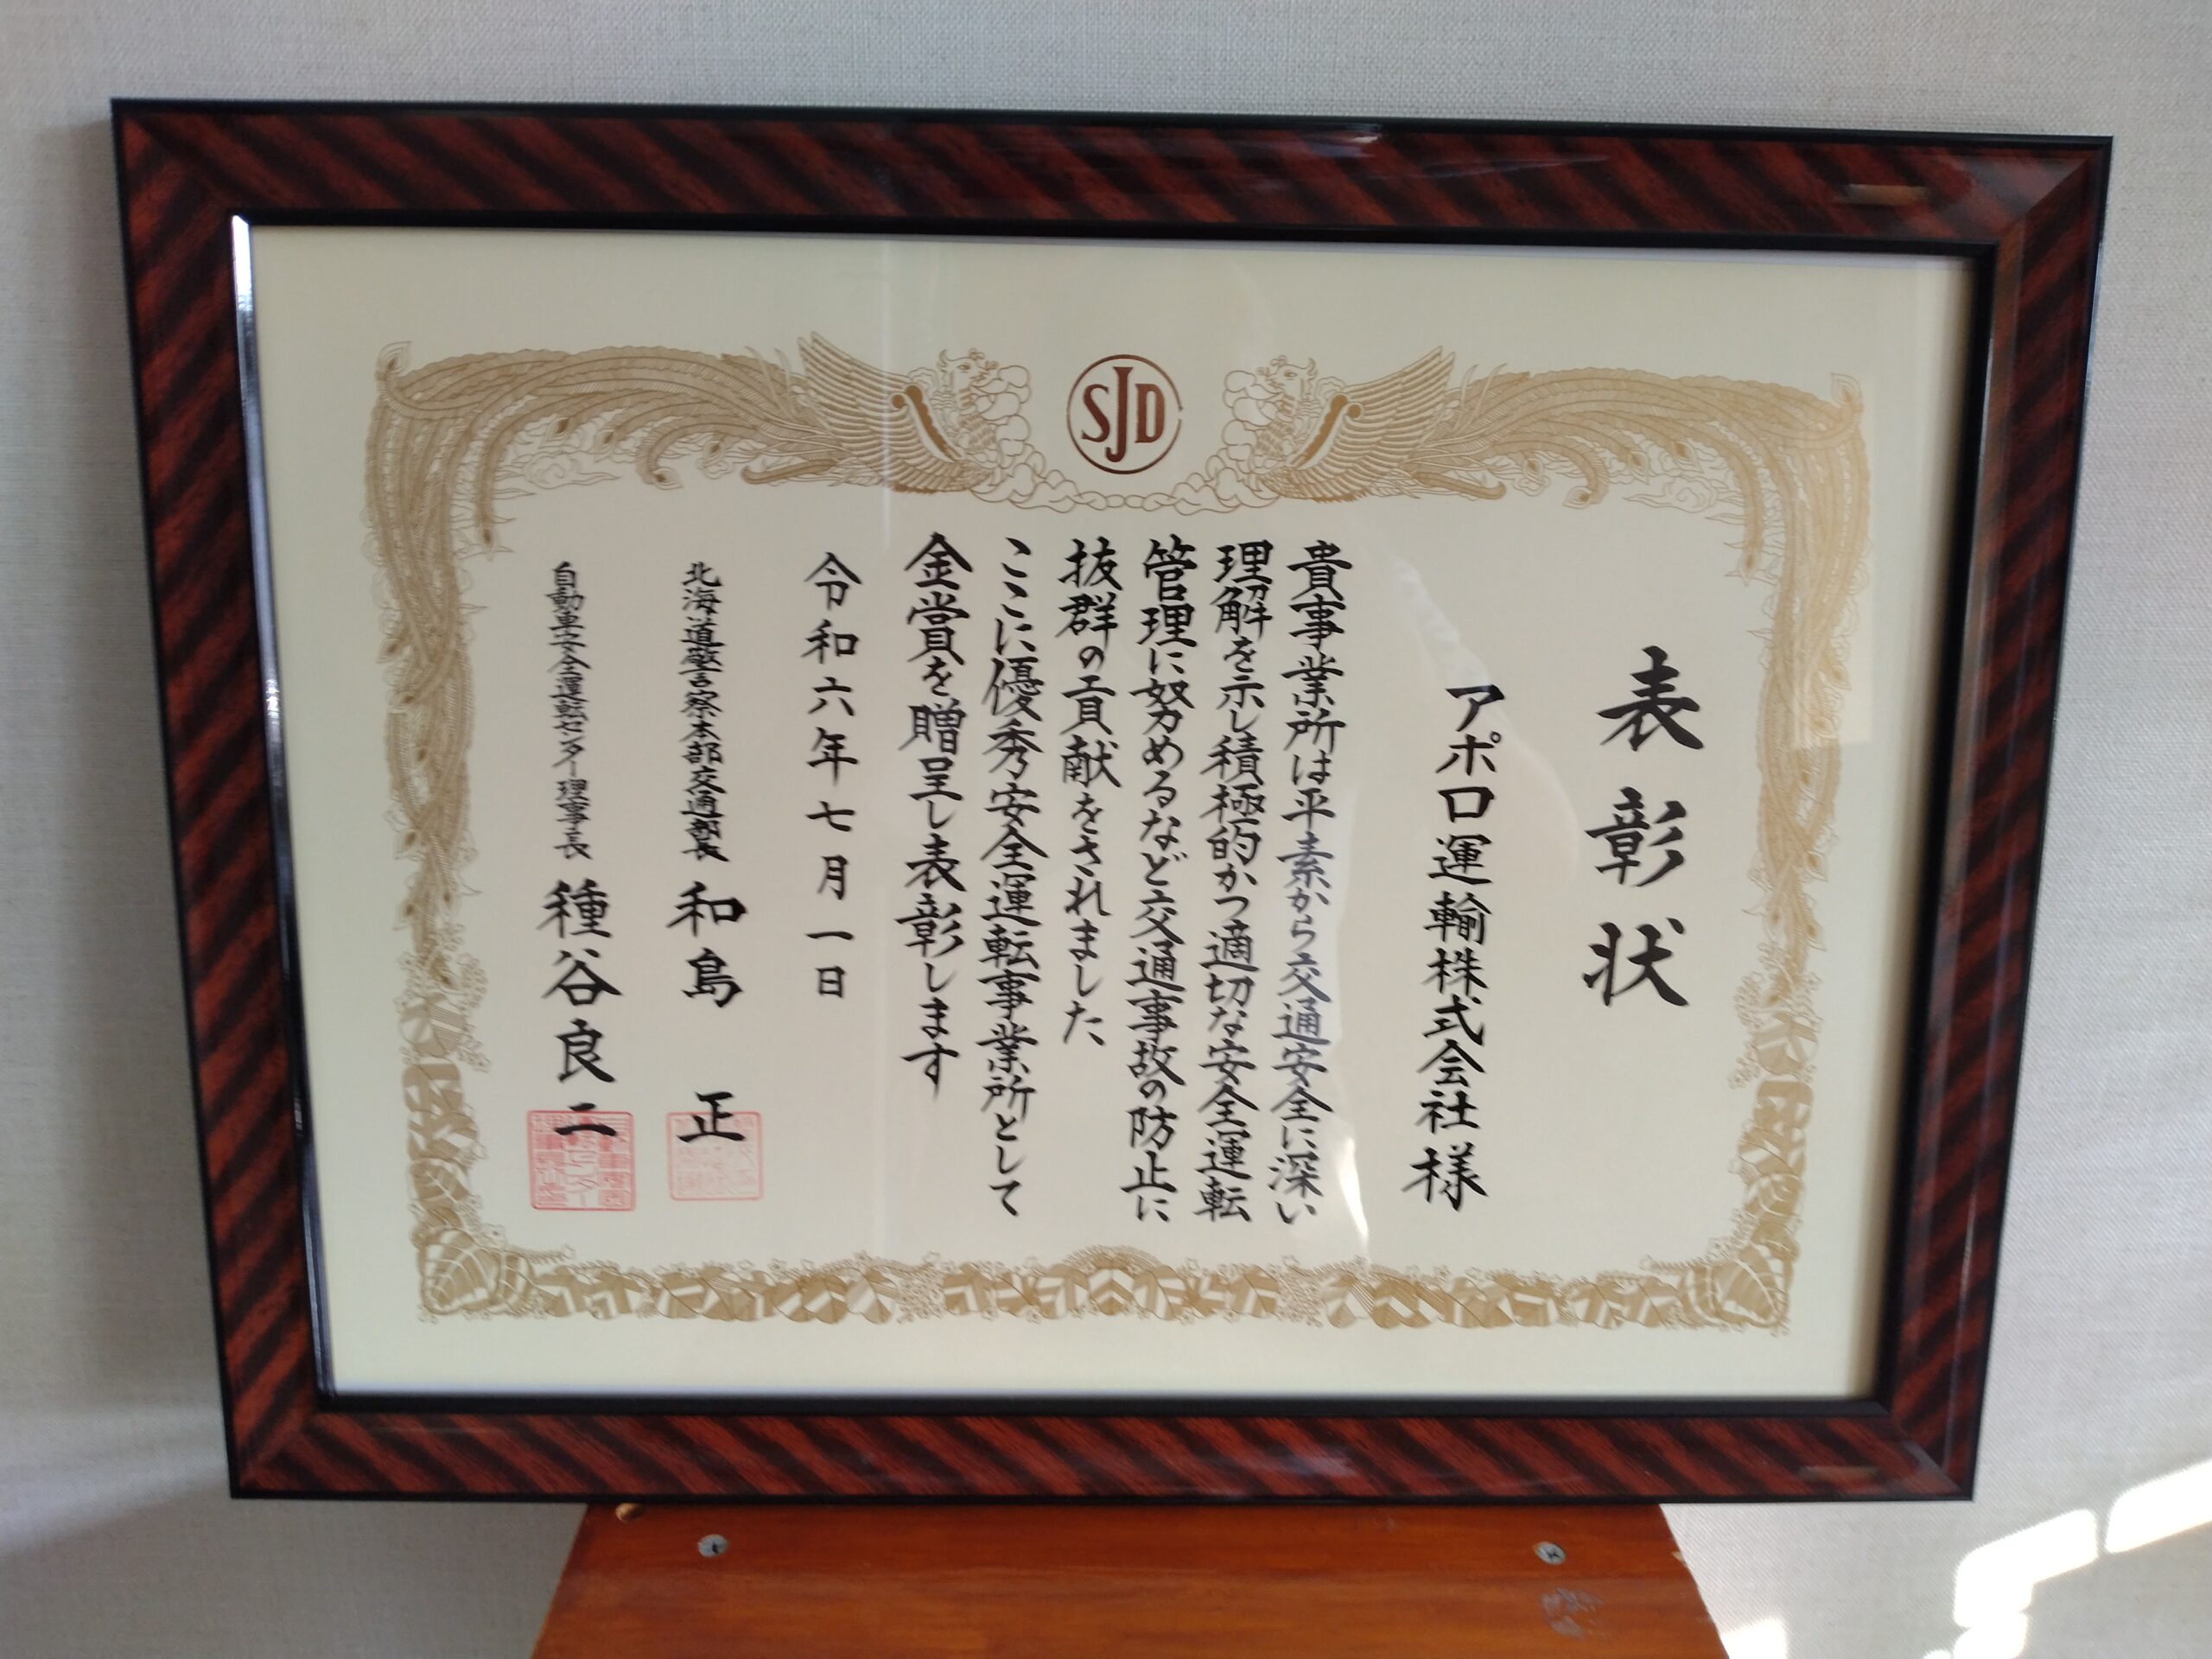 SJD
表彰状
アポロ運輸株式会社様
貴事業所は平素から交通安全に深い
理解を示し積極的かつ適切な安全運転
管理に努めるなど交通事故の防止に
抜群の貢献をされました
ここに優秀安全運転事業所として
金賞を贈呈し表彰します
令和六年七月一日
北海道警察本部交通部長 和島 正
自動車安全運転センター理事長 種谷良二